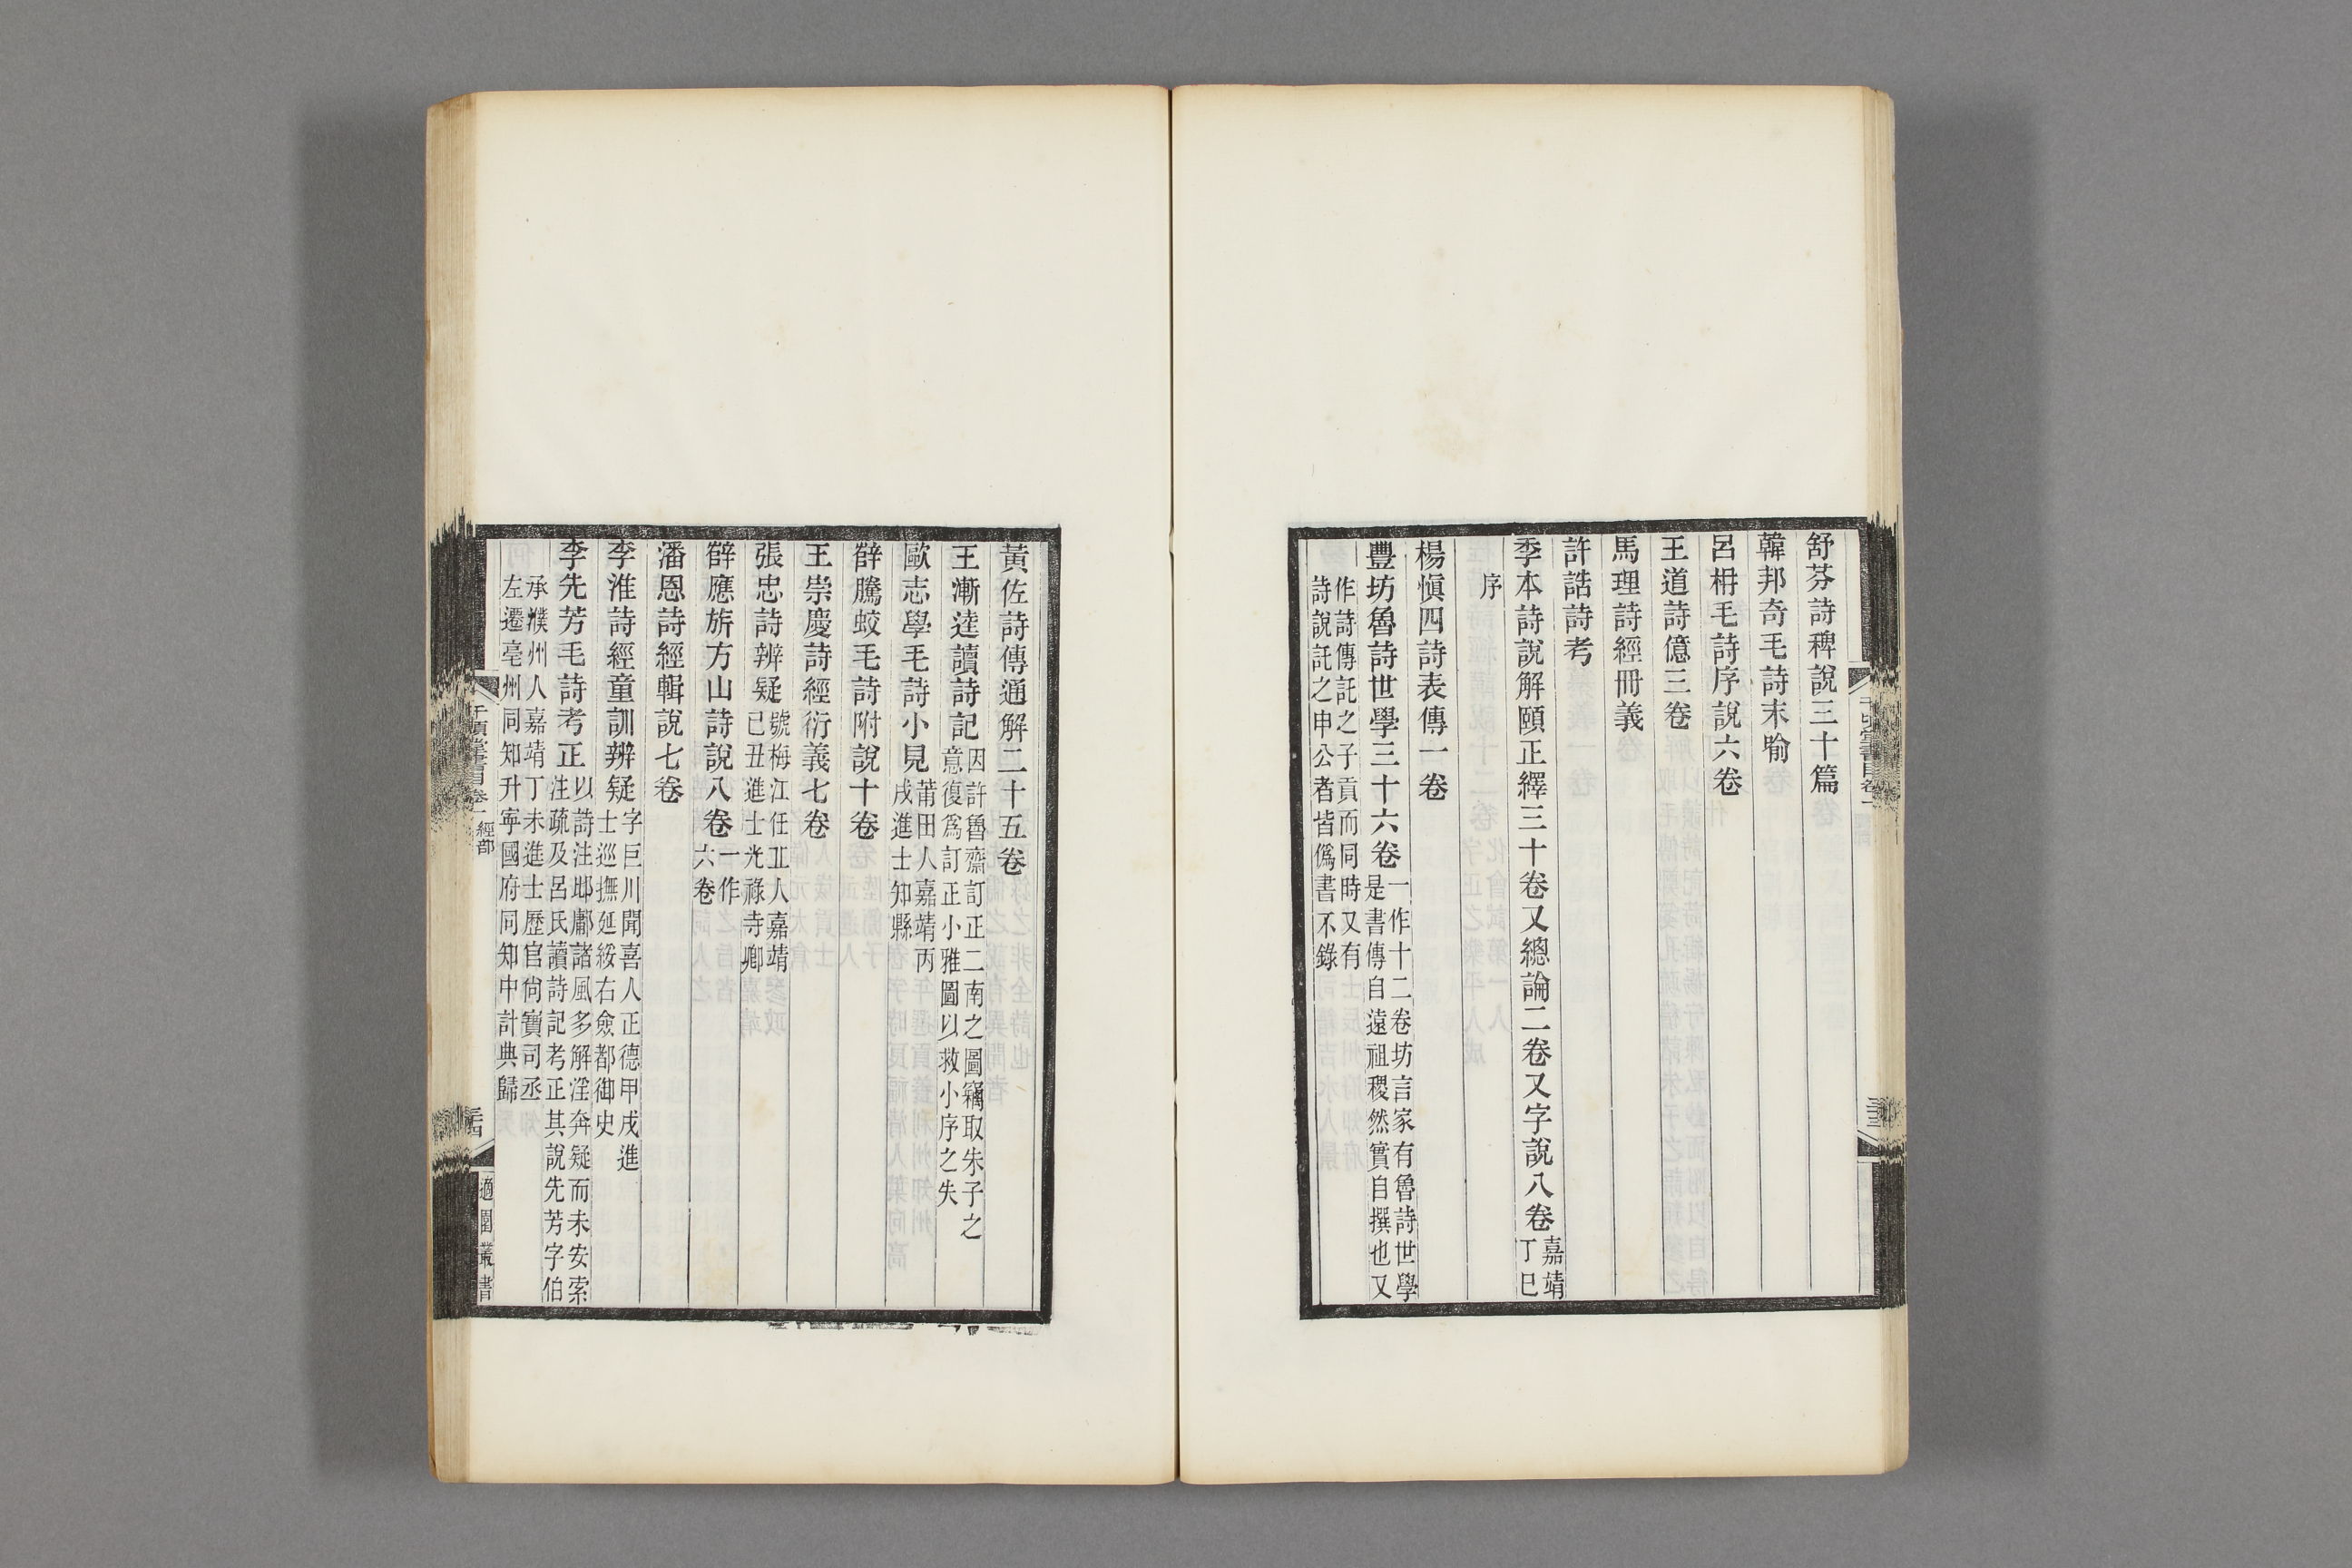 舒芬詩稗說三十篇
韓邦奇毛詩末喻
呂柟毛詩序說六卷
王道詩億三卷
馬理詩經冊義
許誥詩考
季本詩說解頤正繹三十卷又總論二卷又字說八卷嘉靖
丁巳
序
楊愼四詩表傳一卷
豐坊魯詩世學三十六卷一作十二卷坊言家有魯詩世學
是書傳自遠祖稷然實自撰也又
作詩傳託之子貢而同時又有
詩說託之申公者皆僞書不錄
黃佐詩傳通解二十五卷
王漸逵讀詩記因許魯齋訂正二南之圖竊取朱子之
意復爲訂正小雅圖以救小序之失
歐志學毛詩小見莆田人嘉靖丙
戌進士知縣
薛騰蛟毛詩附說十卷
王崇慶詩經衍義七卷
張忠詩辨疑號梅江任丘人嘉靖
已丑進士光祿寺卿
薛應旂方山詩說八卷一作
六卷
潘恩詩經輯說七卷
李淮詩經童訓辨疑字巨川聞喜人正德甲戌進
士巡撫延綏右僉都御史
李先芳毛詩考正以詩注邶鄘諸風多解淫奔疑而未安索
注疏及呂氏讀詩記考正其說先芳字伯
承濮州人嘉靖丁未進士歷官尙寶司丞
左遷亳州同知升寧國府同知中計典歸
千頃堂書目卷一 經部
適園叢書